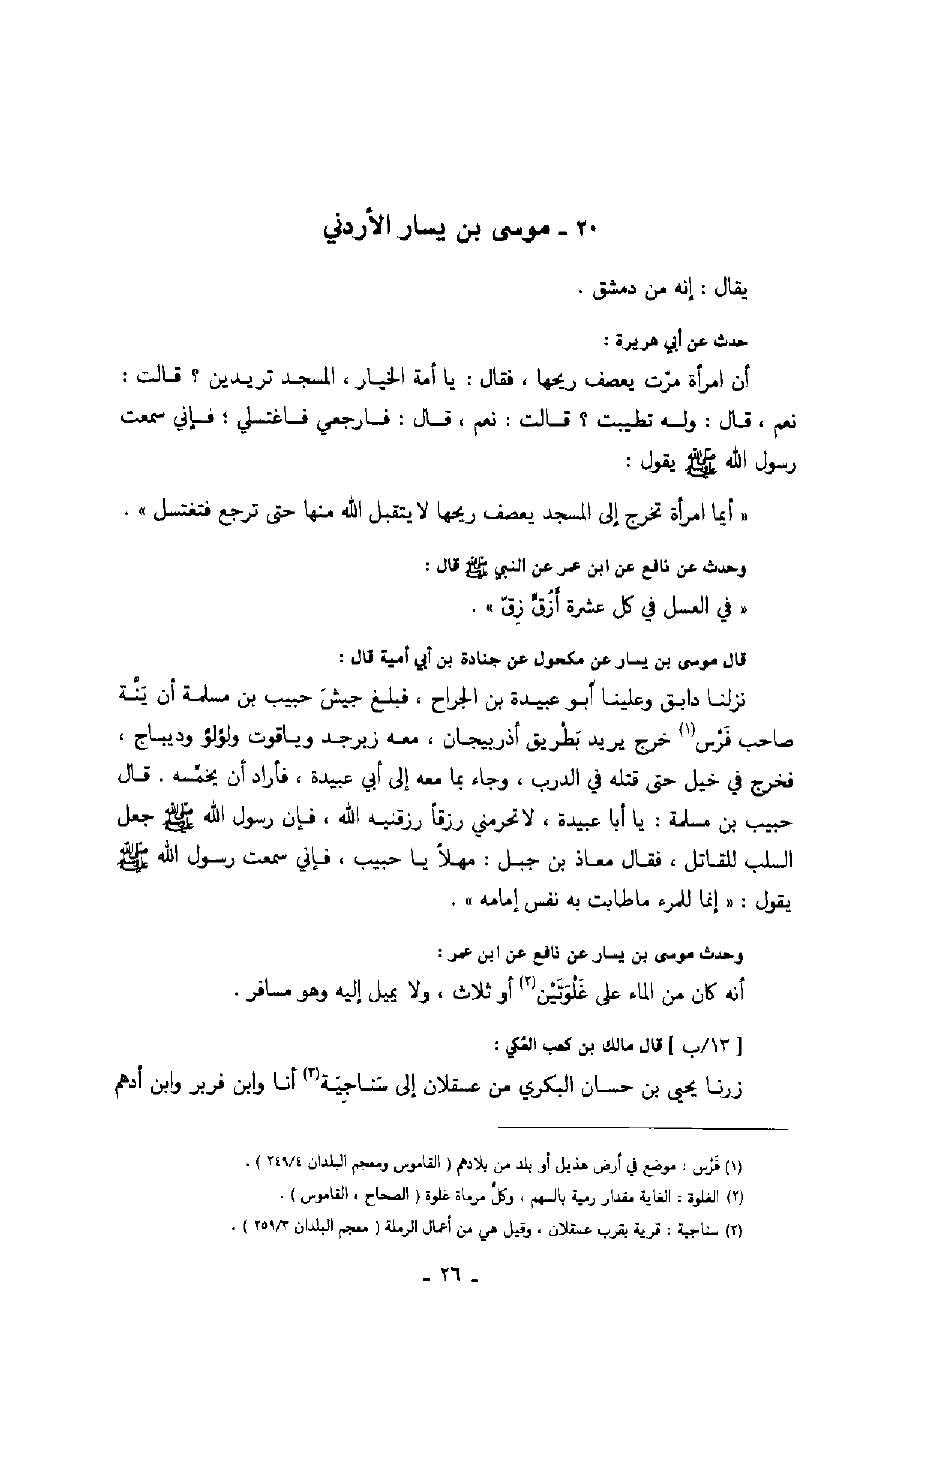 ٢٠ - موسى بن يسار الأردني
يقال : إنه من دمشق .
حدث عن أبي هريرة :
أن امرأة مرّت يعصف ريحها ، فقال : يا أمة الجبار ، المسجد تريدين ؟ قالت :
نعم ، قال : وله تطيبت ؟ قالت : نعم ، قال : فارجعي فاغتسلي ؛ فإني سمعت
رسول الله ﷺ يقول :
« أيما امرأة تخرج إلى المسجد يعصف ريحها لا يتقبل الله منها حتى ترجع فتغتسل » .
وحدث عن نافع عن ابن عمر عن النبي ﷺ قال :
« في العسل في كل عشرة أَزُقٍّ زِقّ » .
قال موسى بن يسار عن مكحول عن جنادة بن أبي أمية قال :
نزلنا دابق وعلينا أبو عبيدة بن الجراح ، فبلغ جيشَ حبيب بن مسلمة أن
صاحب قَرْس(١) خرج يريد بَطْريق أذربيجان ، معه زبرجد وياقوت ولؤلؤ وديباج ،
فخرج في خيل حتى قتله في الدرب ، وجاء بما معه إلى أبي عبيدة ، فأراد أن يخمّسه . قال
حبيب بن مسلمة : يا أبا عبيدة ، لا تحرمني رزقاً رزقنيه الله ، فإن رسول الله ﷺ جعل
السلب للقاتل ، فقال معاذ بن جبل : مهلاً يا حبيب ، فإني سمعت رسول الله ﷺ
يقول : « إنما للمرء ما طابت به نفس إمامه » .
وحدث موسى بن يسار عن نافع عن ابن عمر :
أنه كان من الماء على غَلْوَتَيْن(٢) أو ثلاث ، ولا يميل إليه وهو مسافر .
[ ١٣/ب ] قال مالك بن كعب العَكي :
زرنا يحيى بن حسان البكري من عسقلان إلى سَناجِيَة(٣) أنا وابن قرير وابن أدهم
(١) قَرْس : موضع في أرض هذيل أو بلد من بلادهم ( القاموس ومعجم البلدان ٢٤٩/٤ ) .
(٢) الغلوة : الغاية مقدار رمية بالسهم ، وكلُّ مرماة غلوة ( الصحاح ، القاموس ) .
(٣) سناجية : قرية بقرب عسقلان ، وقيل هي من أعمال الرملة ( معجم البلدان ٢٥٩/٣ ) .
- ٢٦ -